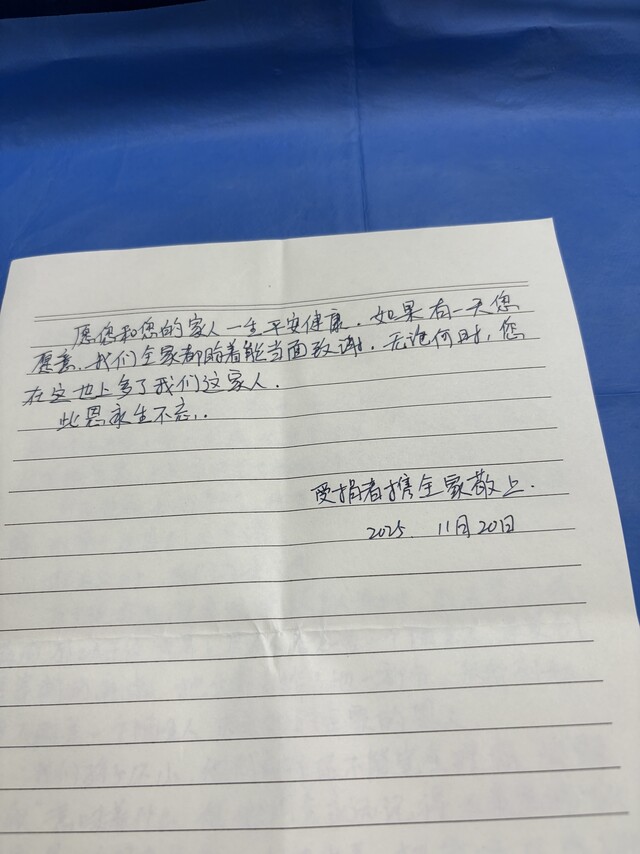 愿您和您的家人一生平安健康．如果有一天您
愿意．我们全家都盼着能当面致谢．无论何时，您
在这世上多了我们这家人．
此恩永生不忘．
受捐者携全家敬上．
2025．11月20日